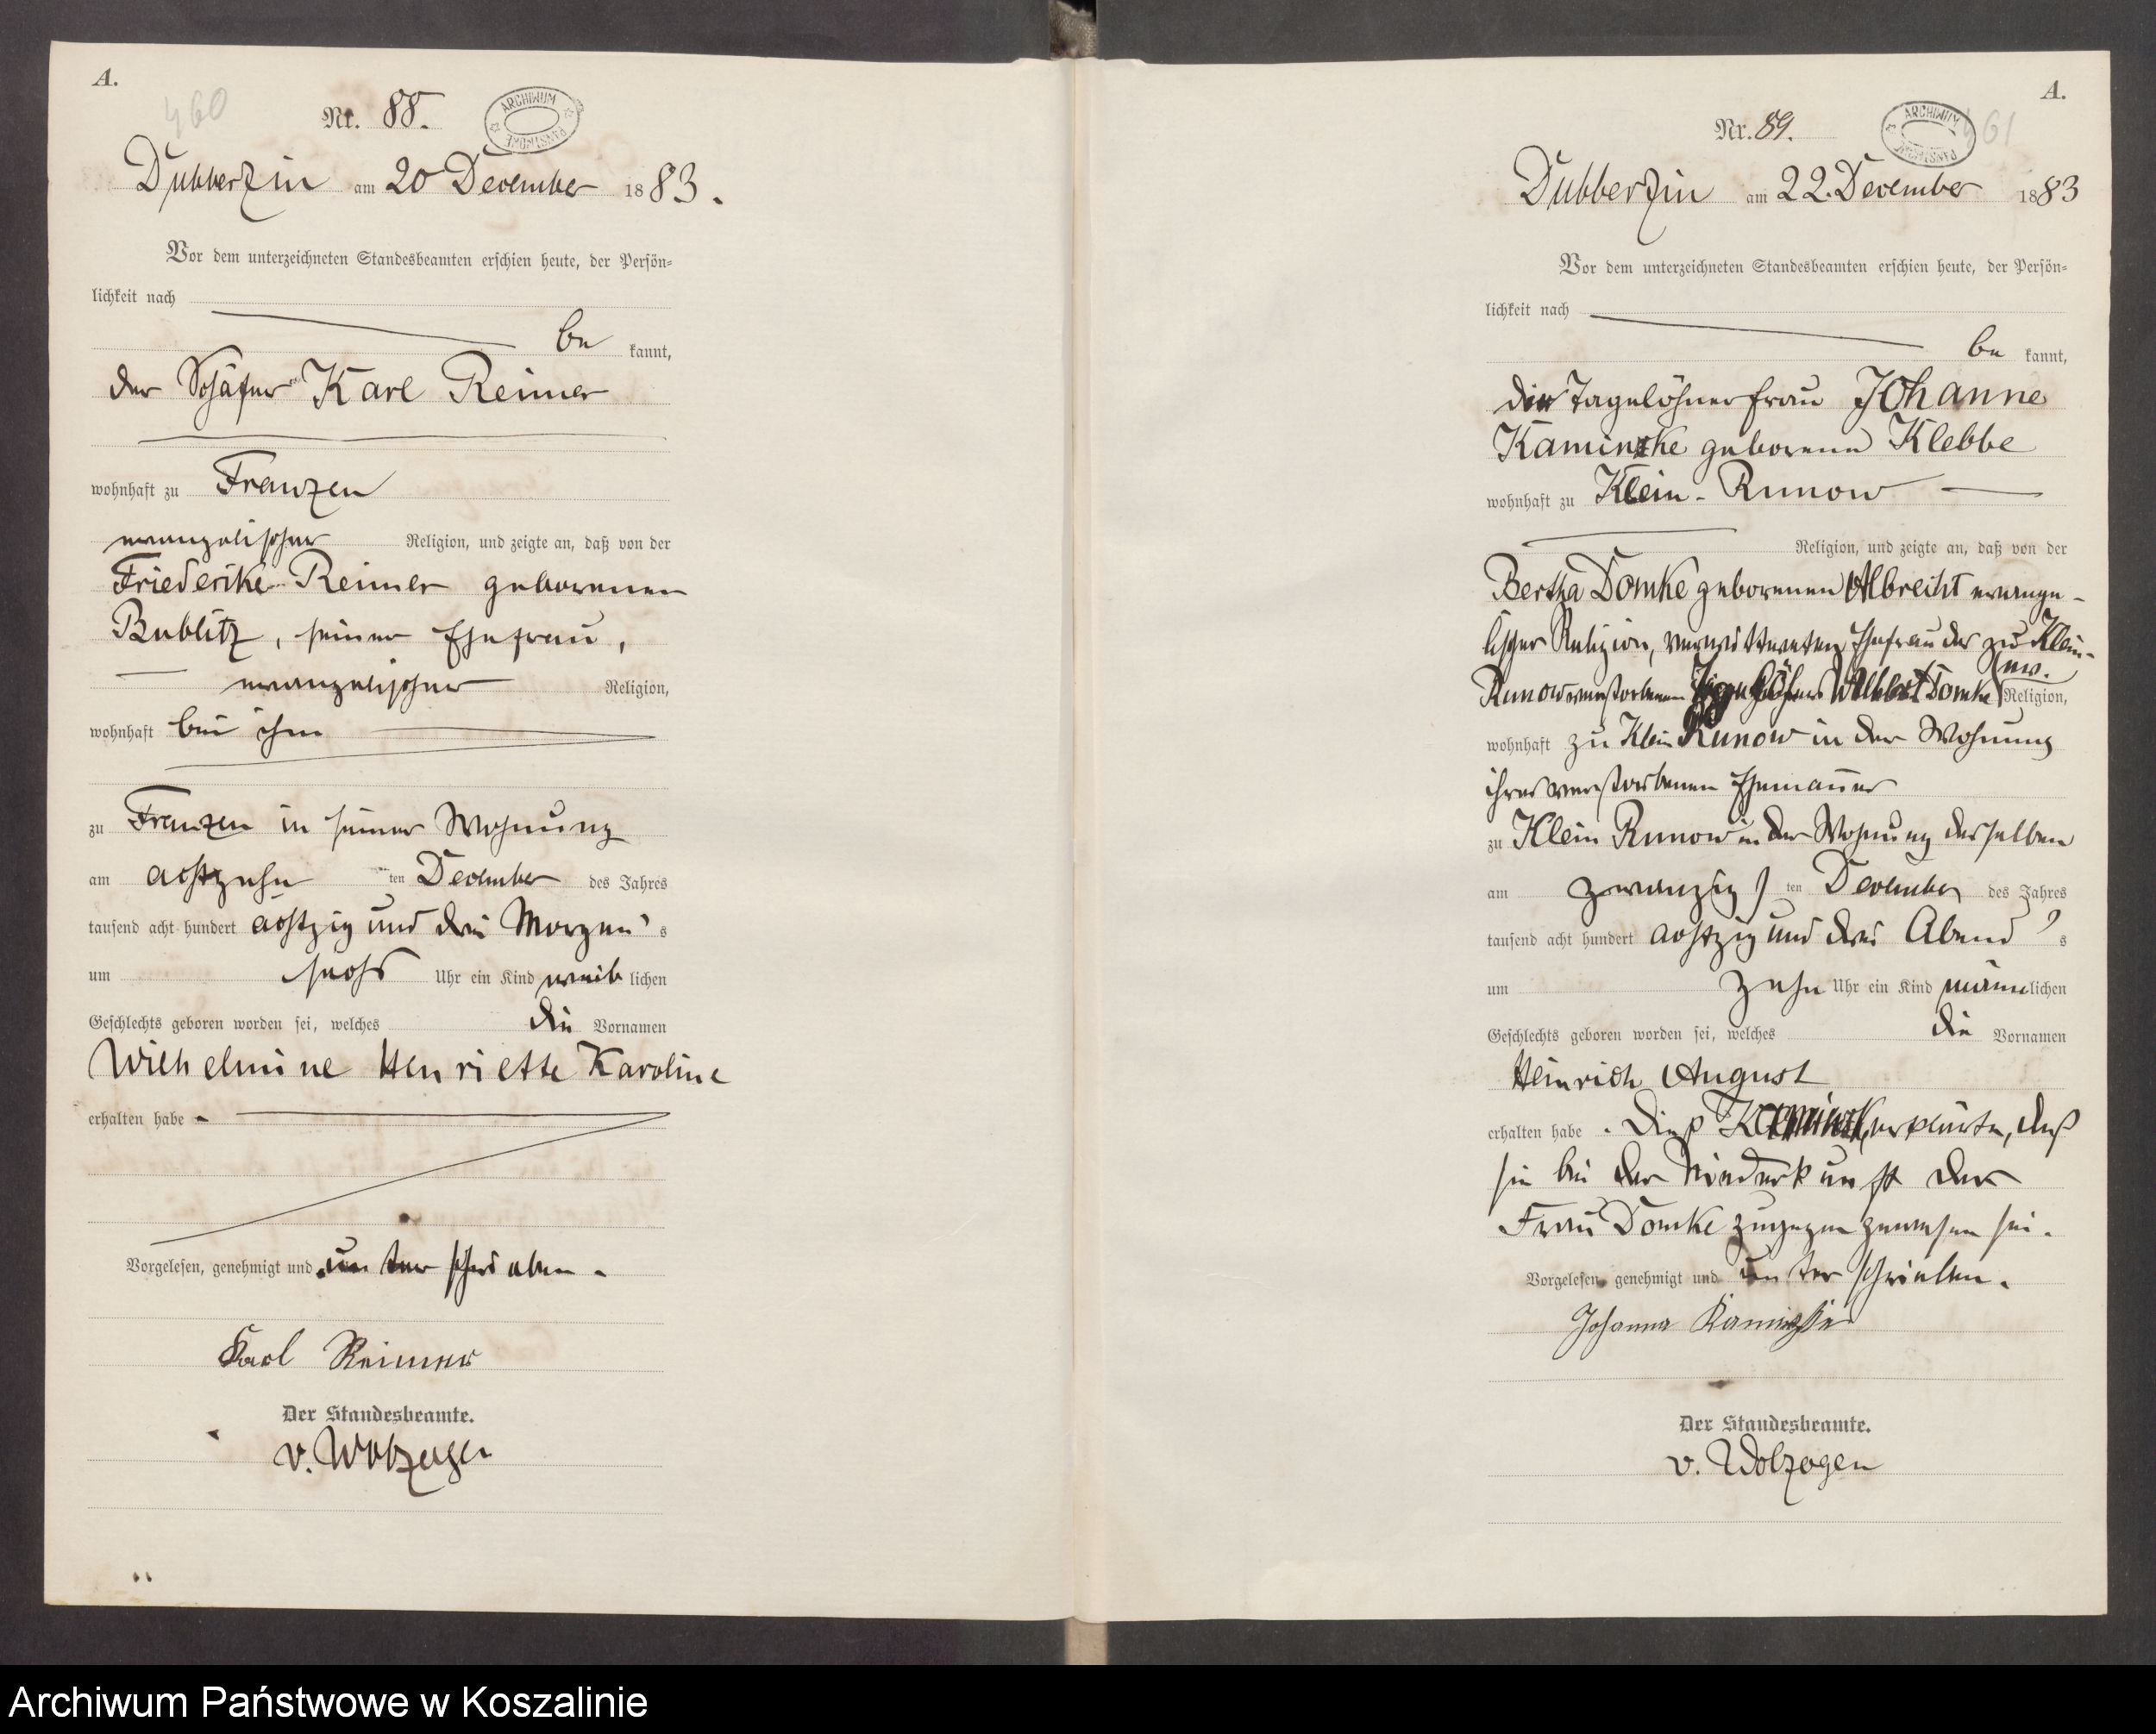 A.
460
Nr. 88.
ARCHIWUM PAŃSTWOWE
Dubberzin am 20 December 1883.
Vor dem unterzeichneten Standesbeamten erschien heute, der Persön-
lichkeit nach
be kannt,
der Schäfer Karl Reimer
wohnhaft zu Franzen
evangelischer Religion, und zeigte an, daß von der
Friederike Reimer geborenen
Bublitz, seiner Ehefrau,
evangelischer Religion,
wohnhaft bei ihm
zu Franzen in seiner Wohnung
am achtzehn ten December des Jahres
tausend acht hundert achtzig und drei Morgen s
um sechs Uhr ein Kind weib lichen
Geschlechts geboren worden sei, welches die Vornamen
Wilhelmine Henriette Karoline
erhalten habe
Vorgelesen, genehmigt und unterschrieben.
Karl Reimer
Der Standesbeamte.
v. Wolzogen
A.
461
Nr. 89.
ARCHIWUM PAŃSTWOWE
Dubberzin am 22. December 1883
Vor dem unterzeichneten Standesbeamten erschien heute, der Persön-
lichkeit nach
be kannt,
die Tagelöhnerfrau Johanne
Kaminske geborene Klebbe
wohnhaft zu Klein-Runow
Religion, und zeigte an, daß von der
Bertha Domke geborenen Albrecht evange-
lischer Religion, verwittweten Ehefrau des zu Klein-
Runow verstorbenen Domke Religion,
wohnhaft zu Klein Runow in der Wohnung
ihres verstorbenen Ehemannes
zu Klein Runow in der Wohnung desselben
am zwanzigs ten December des Jahres
tausend acht hundert achtzig und drei Abend s
um zehn Uhr ein Kind männ lichen
Geschlechts geboren worden sei, welches die Vornamen
Heinrich August
erhalten habe. Die p Kaminsk erklärte, daß
sie bei der Niederkunft der
Frau Domke zugegen gewesen sei.
Vorgelesen, genehmigt und unterschrieben.
Johanna Kaminske
Der Standesbeamte.
v. Wolzogen
Archiwum Państwowe w Koszalinie